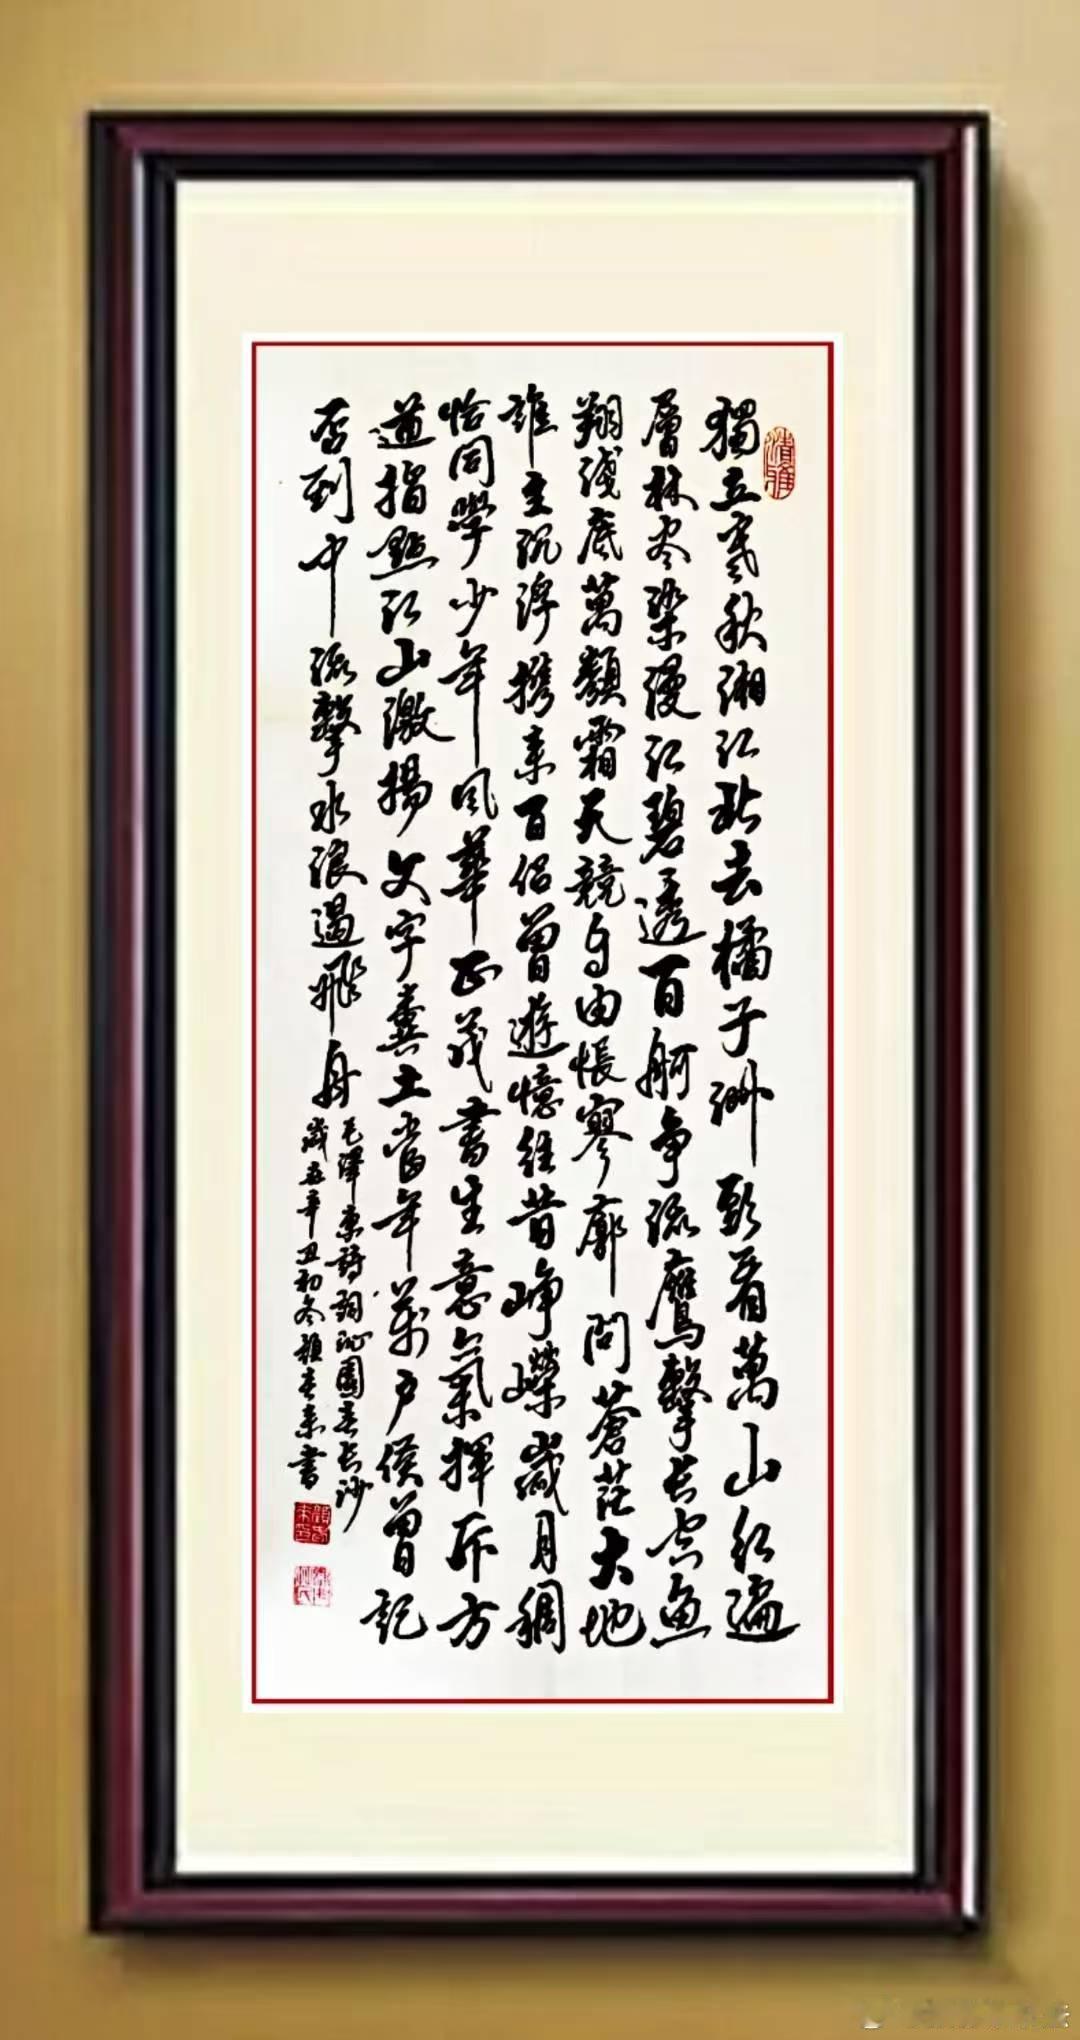 清雅
獨立寒秋湘江北去橘子洲頭看萬山紅遍
層林尽染漫江碧透百舸争流鷹擊長空魚
翔淺底萬類霜天競自由悵寥廓問蒼茫大地
誰主沉浮携来百侣曾遊憶往昔崢嶸歲月稠
恰同學少年風華正茂書生意氣揮斥方
遒指點江山激揚文字糞土當年萬户侯曾記
否到中流擊水浪遏飛舟
毛澤東詩詞沁園春長沙
歲在辛丑初冬顏春来書